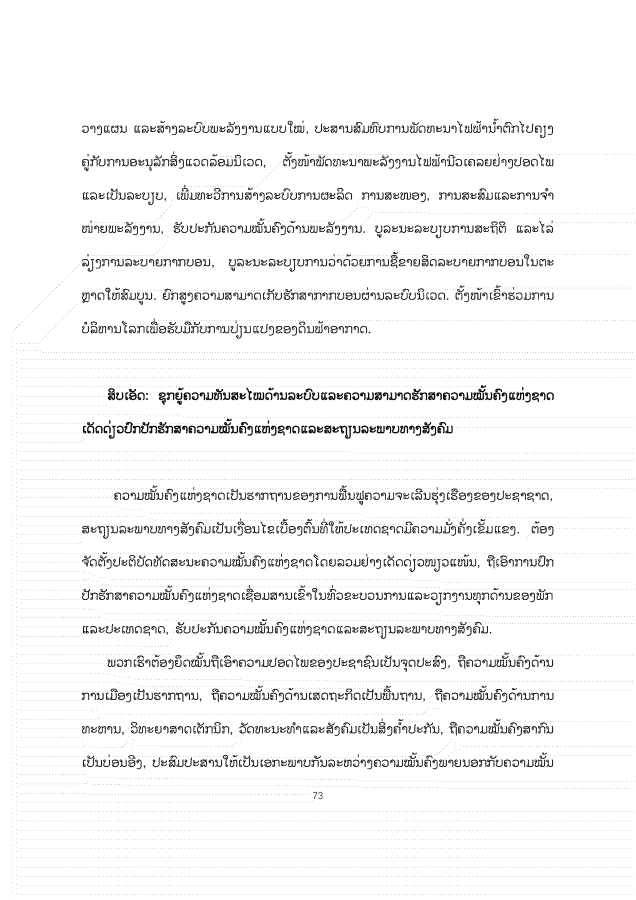 ວາງແຜນ ແລະສ້າງລະບົບພະລັງງານແບບໃໝ່, ປະສານສົມທົບການພັດທະນາໄຟຟ້ານ້ຳຕົກໄປຄຽງ
ຄູ່ກັບການອະນຸລັກສິ່ງແວດລ້ອມນິເວດ, ຕັ້ງໜ້າພັດທະນາພະລັງງານໄຟຟ້ານິວເຄລຍຢ່າງປອດໄພ
ແລະເປັນລະບຽບ, ເພີ່ມທະວີການສ້າງລະບົບການຜະລິດ ການສະໜອງ, ການສະສົມແລະການຈຳ
ໜ່າຍພະລັງງານ, ຮັບປະກັນຄວາມໝັ້ນຄົງດ້ານພະລັງງານ. ບູລະນະລະບຽບການສະຖິຕິ ແລະໄລ່
ລ່ຽງການລະບາຍກາກບອນ, ບູລະນະລະບຽບການວ່າດ້ວຍການຊື້ຂາຍສິດລະບາຍກາກບອນໃນຕະ
ຫຼາດໃຫ້ສົມບູນ. ຍົກສູງຄວາມສາມາດເກັບຮັກສາກາກບອນຜ່ານລະບົບນິເວດ. ຕັ້ງໜ້າເຂົ້າຮ່ວມການ
ບໍລິຫານໂລກເພື່ອຮັບມືກັບການປ່ຽນແປງຂອງດິນຟ້າອາກາດ.
ສິບເອັດ: ຊຸກຍູ້ຄວາມທັນສະໄໝດ້ານລະບົບແລະຄວາມສາມາດຮັກສາຄວາມໝັ້ນຄົງແຫ່ງຊາດ
ເດັດດ່ຽວປົກປັກຮັກສາຄວາມໝັ້ນຄົງແຫ່ງຊາດແລະສະຖຽນລະພາບທາງສັງຄົມ
ຄວາມໝັ້ນຄົງແຫ່ງຊາດເປັນຮາກຖານຂອງການຟື້ນຟູຄວາມຈະເລີນຮຸ່ງເຮືອງຂອງປະຊາຊາດ,
ສະຖຽນລະພາບທາງສັງຄົມເປັນເງື່ອນໄຂເບື້ອງຕົ້ນທີ່ໃຫ້ປະເທດຊາດມີຄວາມມັ່ງຄັ່ງເຂັ້ມແຂງ. ຕ້ອງ
ຈັດຕັ້ງປະຕິບັດທັດສະນະຄວາມໝັ້ນຄົງແຫ່ງຊາດໂດຍລວມຢ່າງເດັດດ່ຽວໜຽວແໜ້ນ, ຖືເອົາການປົກ
ປັກຮັກສາຄວາມໝັ້ນຄົງແຫ່ງຊາດເຊື່ອມສານເຂົ້າໃນທົ່ວຂະບວນການແລະວຽກງານທຸກດ້ານຂອງພັກ
ແລະປະເທດຊາດ, ຮັບປະກັນຄວາມໝັ້ນຄົງແຫ່ງຊາດແລະສະຖຽນລະພາບທາງສັງຄົມ.
ພວກເຮົາຕ້ອງຍຶດໝັ້ນຖືເອົາຄວາມປອດໄພຂອງປະຊາຊົນເປັນຈຸດປະສົງ, ຖືຄວາມໝັ້ນຄົງດ້ານ
ການເມືອງເປັນຮາກຖານ, ຖືຄວາມໝັ້ນຄົງດ້ານເສດຖະກິດເປັນພື້ນຖານ, ຖືຄວາມໝັ້ນຄົງດ້ານການ
ທະຫານ, ວິທະຍາສາດເຕັກນິກ, ວັດທະນະທຳແລະສັງຄົມເປັນສິ່ງຄ້ຳປະກັນ, ຖືຄວາມໝັ້ນຄົງສາກົນ
ເປັນບ່ອນອີງ, ປະສົມປະສານໃຫ້ເປັນເອກະພາບກັນລະຫວ່າງຄວາມໝັ້ນຄົງພາຍນອກກັບຄວາມໝັ້ນ
73